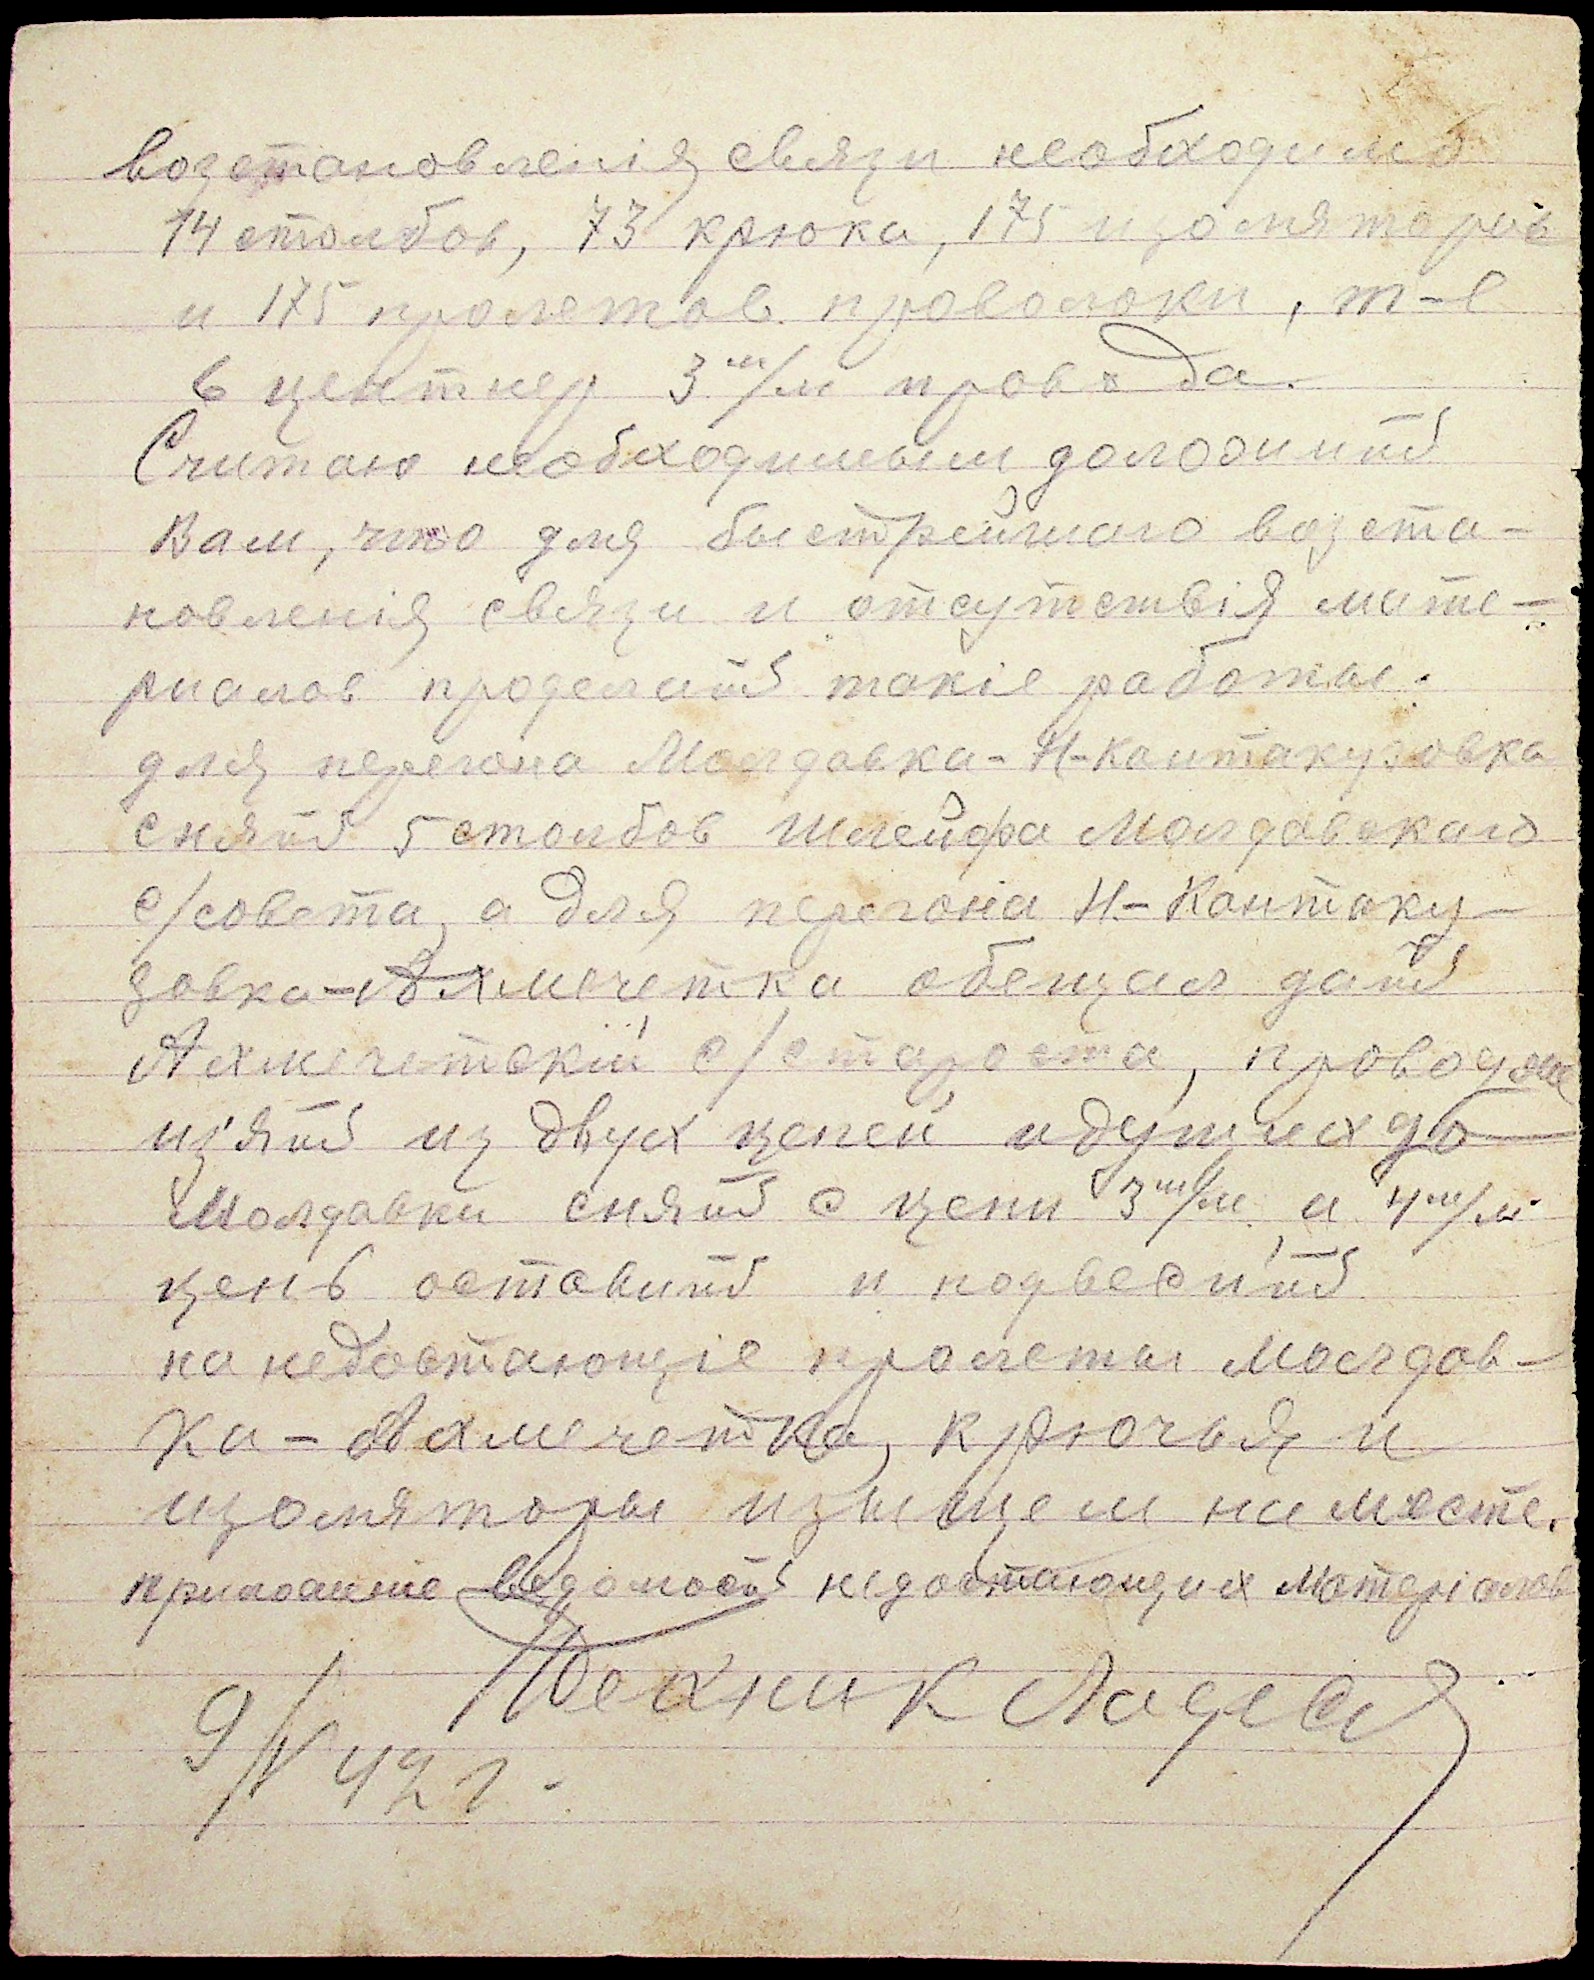 возстановленія связи необходимо
14 столбов, 73 крюка, 175 изоляторов
и 175 пролетов проволоки, т-е
6 центнер 3 м/м провода.
Считаю необходимым доложить
Вам, что для быстрейшаго возста-
новленія связи и отсутствія мате-
риалов проделать такіе работы.
для перегона Молдавка-Н-Кантакузовка
снять 5 столбов шлейфа Молдавскаго
с/совета, а для перегона Н-Кантаку-
зовка-Ахмечетка обещал дать
Ахмечетскій с/староста, провод же
из'ять из двух цепей идущих до
Молдавки снять с цепи 3 м/м а 4 м/м
цепь оставить и подвесить
на недостающіе пролеты Молдав-
ка-Ахмечетка, крючья и
изоляторы изыщем на месте.
приложение ведомость недостающих матеріалов
Техник
9/V 42 г.